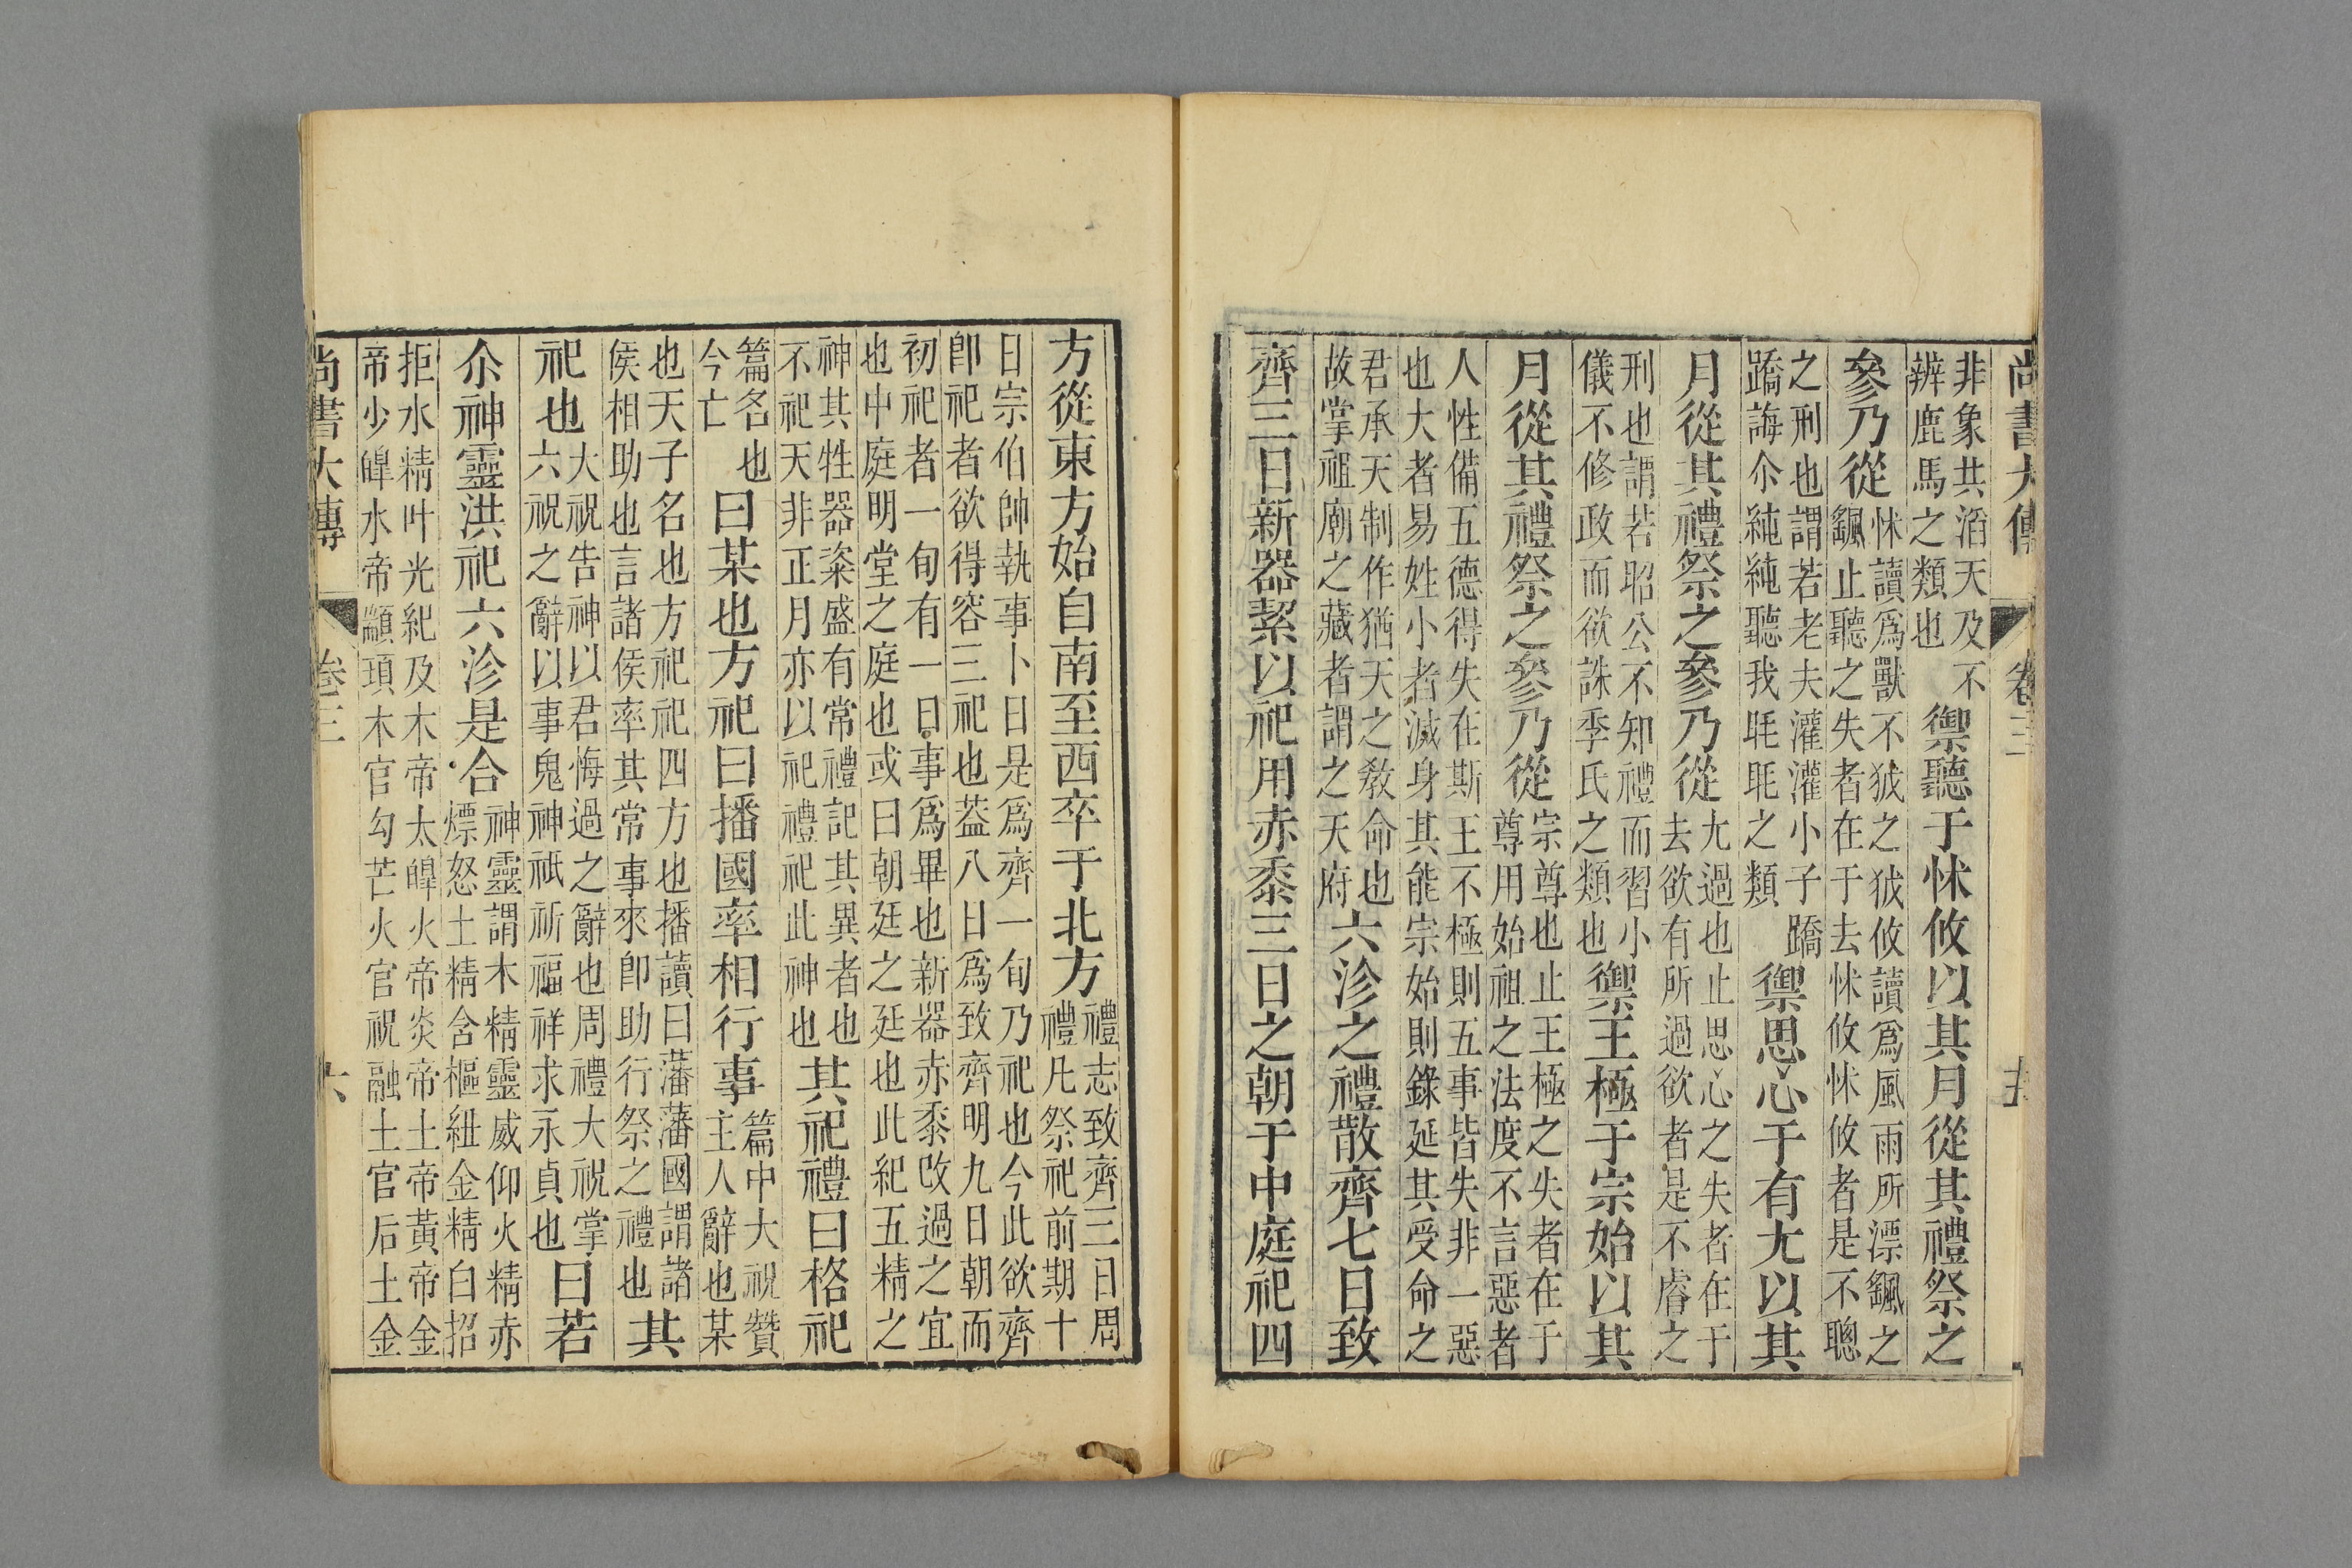 尚書大傳
卷三
五
非象共滔天及不
辨鹿馬之類也
禦聽于怵攸以其月從其禮祭之
參乃從
怵讀爲獸不狘之狘攸讀爲風雨所漂颻之
颻止聽之失者在于去怵攸怵攸者是不聰
之刑也謂若老夫灌灌小子蹻
蹻誨尒純純聽我眊眊之類
禦思心于有尤以其
月從其禮祭之參乃從
尤過也止思心之失者在于
去欲有所過欲者是不睿之
刑也謂若昭公不知禮而習小
儀不修政而欲誅季氏之類也
禦王極于宗始以其
月從其禮祭之參乃從
宗尊也止王極之失者在于
尊用始祖之法度不言惡者
人性備五德得失在斯王不極則五事皆失非一惡
也大者易姓小者滅身其能宗始則錄延其受命之
君承天制作猶天之敎命也
故掌祖廟之藏者謂之天府
六沴之禮散齊七日致
齊三日新器絜以祀用赤黍三日之朝于中庭祀四
方從東方始自南至西卒于北方
禮志致齊三日周
禮凡祭祀前期十
日宗伯帥執事卜日是爲齊一旬乃祀也今此欲齊
卽祀者欲得容三祀也葢八日爲致齊明九日朝而
初祀者一旬有一日事爲畢也新器赤黍改過之宜
也中庭明堂之庭也或曰朝廷之廷也此祀五精之
神其牲器粢盛有常禮記其異者也
不祀天非正月亦以祀禮祀此神也
其祀禮曰格祀
篇名也
今亡
曰某也方祀曰播國率相行事
篇中大祝贊
主人辭也某
也天子名也方祀祀四方也播讀曰藩藩國謂諸
侯相助也言諸侯率其常事來卽助行祭之禮也
其
祀也
大祝告神以君悔過之辭也周禮大祝掌
六祝之辭以事鬼神祇祈福祥求永貞也
曰若
尒神靈洪祀六沴是合
神靈謂木精靈威仰火精赤
熛怒土精含樞紐金精白招
拒水精叶光紀及木帝太皥火帝炎帝土帝黃帝金
帝少皥水帝顓頊木官勾芒火官祝融土官后土金
尚書大傳
卷三
六